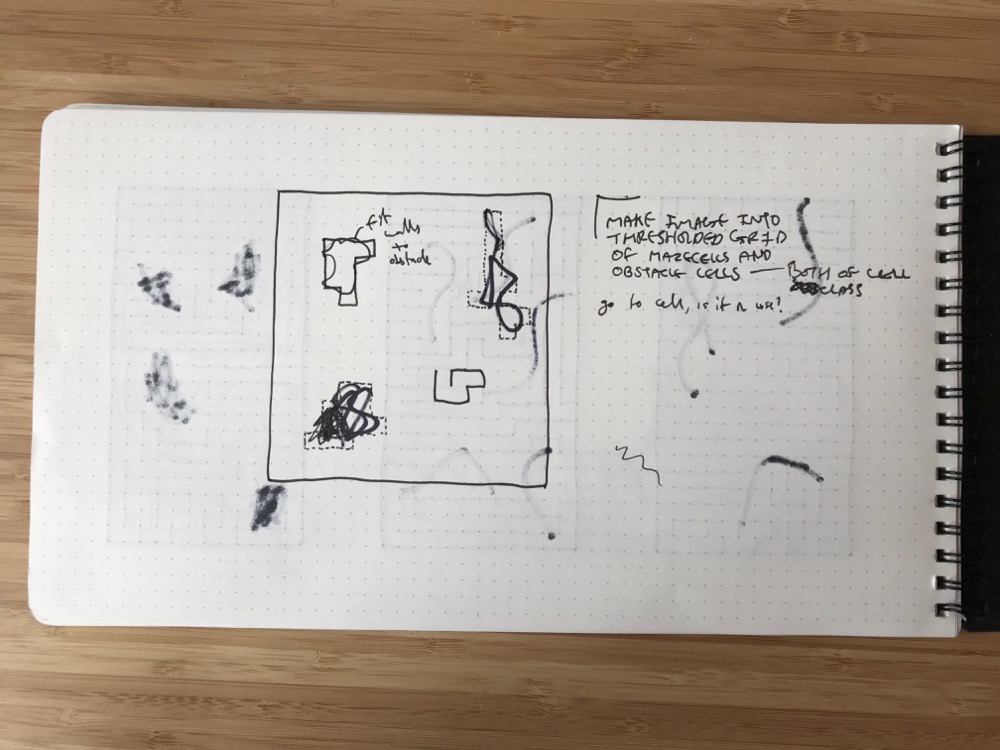 fit walls
to
obstacle
MAKE IMAGE INTO
THRESHOLDED GRID
OF MAZECELLS AND
OBSTACLE CELLS — BOTH OF CELL
CLASS
go to cell, is it in use?